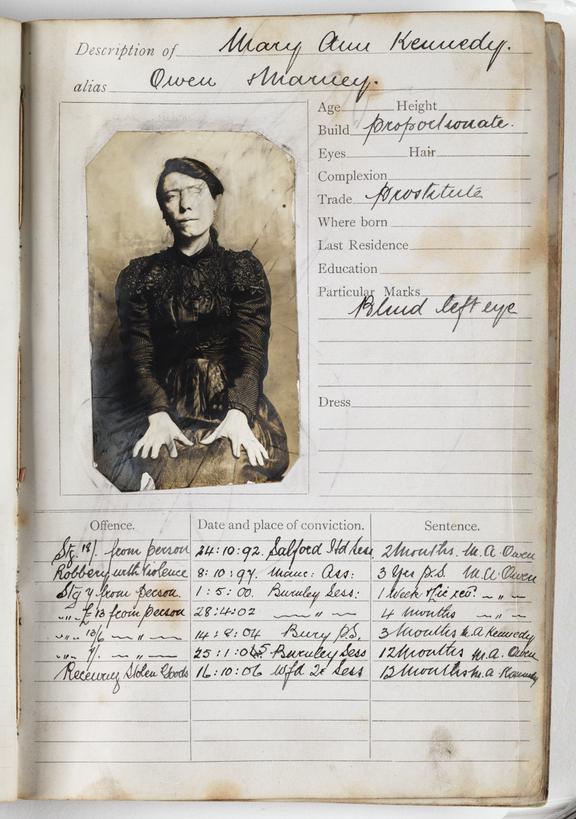 Description of Mary Ann Kennedy.
alias Owen
Age Height
Build proportionate.
Eyes Hair
Complexion
Trade prostitute
Where born
Last Residence
Education
Particular Marks
Blind left eye
Dress
Offence. Date and place of conviction. Sentence.
Stg. 18/. from person 24:10:92. Salford 2 Months. M.A. Owen
Robbery with Violence 8:10:97. Manc: Ass: 3 Yrs p.S. M.A. Owen
Stg from person. 1:5:00. Burnley Sess: 1 Week „ „
„ „ £13 from person 28:4:02 „ 4 Months „ „
„ „ 13/6 „ „ 14:8:04 Bury P.S. 3 Months M.A Kennedy
„ „ „ „ 25:1:05 Burnley Sess 12 Months M.A. Owen
Receiving Stolen Goods 16:10:06 Sess 12 Months M.A Kennedy